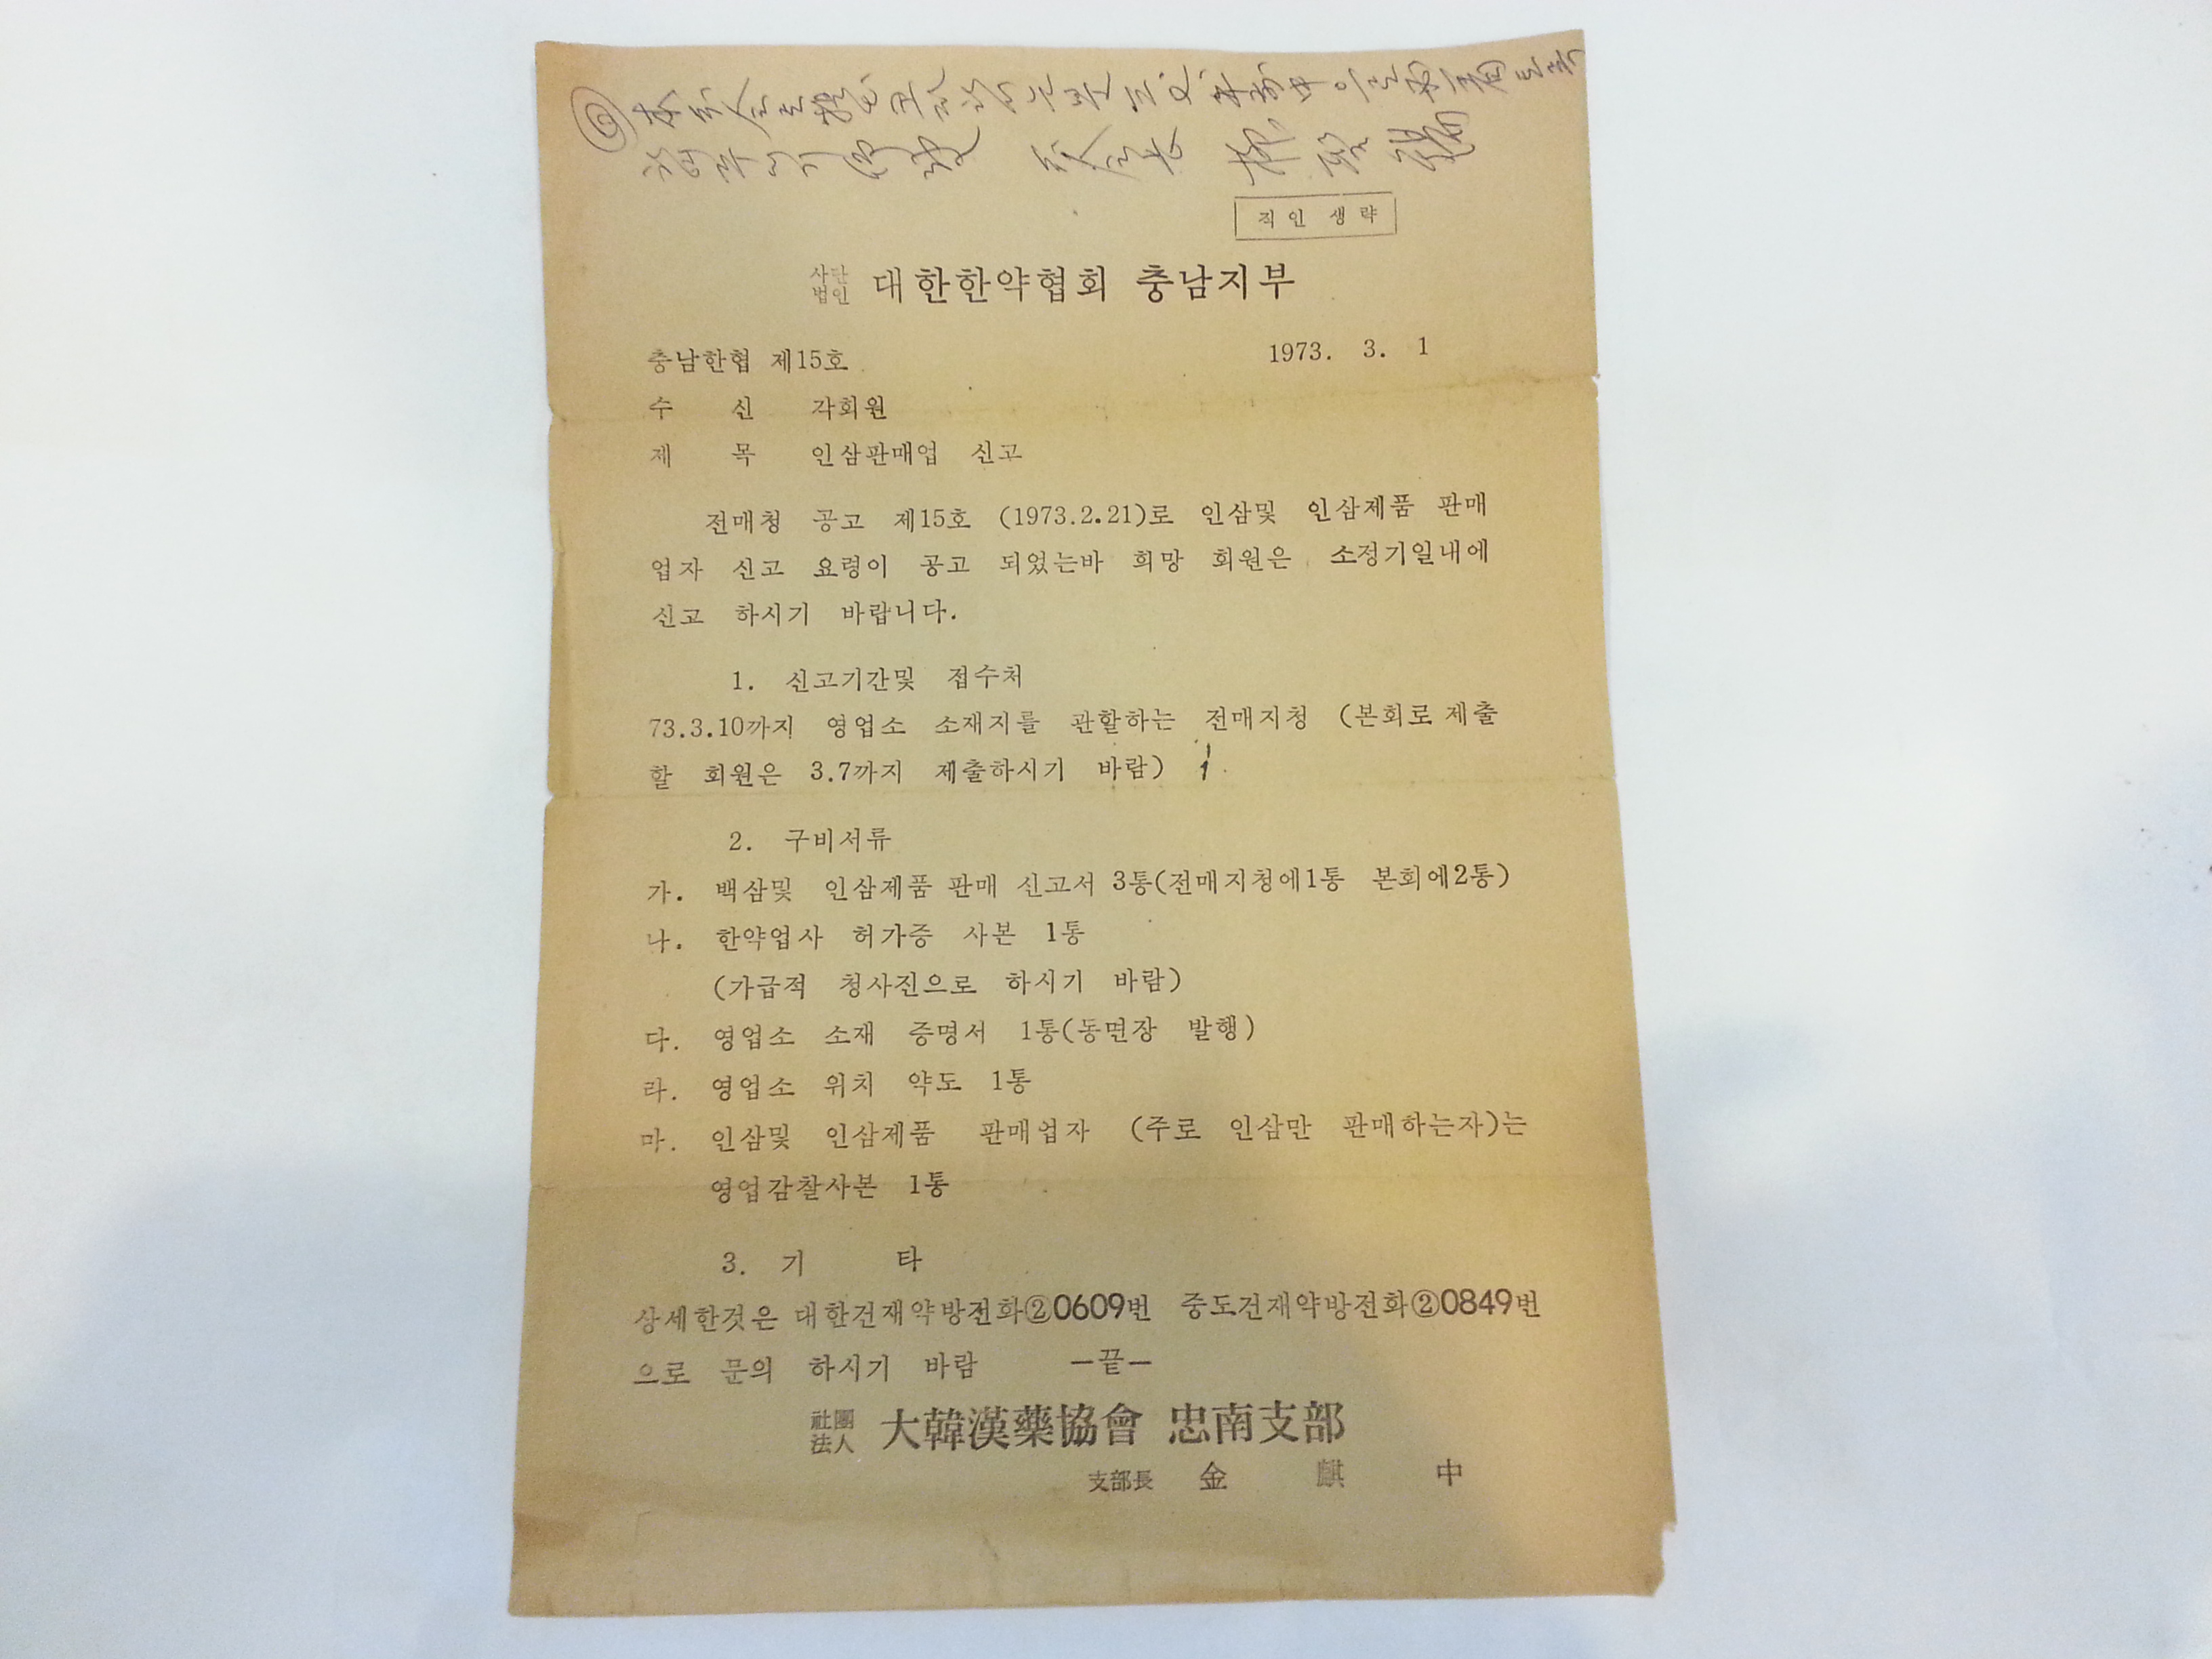 직인 생략
사단법인 대한한약협회 충남지부
충남한협 제15호 1973. 3. 1
수 신 각회원
제 목 인삼판매업 신고
전매청 공고 제15호 (1973.2.21)로 인삼및 인삼제품 판매
업자 신고 요령이 공고 되었는바 희망 회원은 소정기일내에
신고 하시기 바랍니다.
1. 신고기간및 접수처
73.3.10까지 영업소 소재지를 관할하는 전매지청 (본회로 제출
할 회원은 3.7까지 제출하시기 바람)
2. 구비서류
가. 백삼및 인삼제품 판매 신고서 3통(전매지청에1통 본회에2통)
나. 한약업사 허가증 사본 1통
(가급적 청사진으로 하시기 바람)
다. 영업소 소재 증명서 1통(동면장 발행)
라. 영업소 위치 약도 1통
마. 인삼및 인삼제품 판매업자 (주로 인삼만 판매하는자)는
영업감찰사본 1통
3. 기 타
상세한것은 대한건재약방전화②0609번 중도건재약방전화②0849번
으로 문의 하시기 바람 -끝-
社團法人 大韓漢藥協會 忠南支部
支部長 金 麒 中